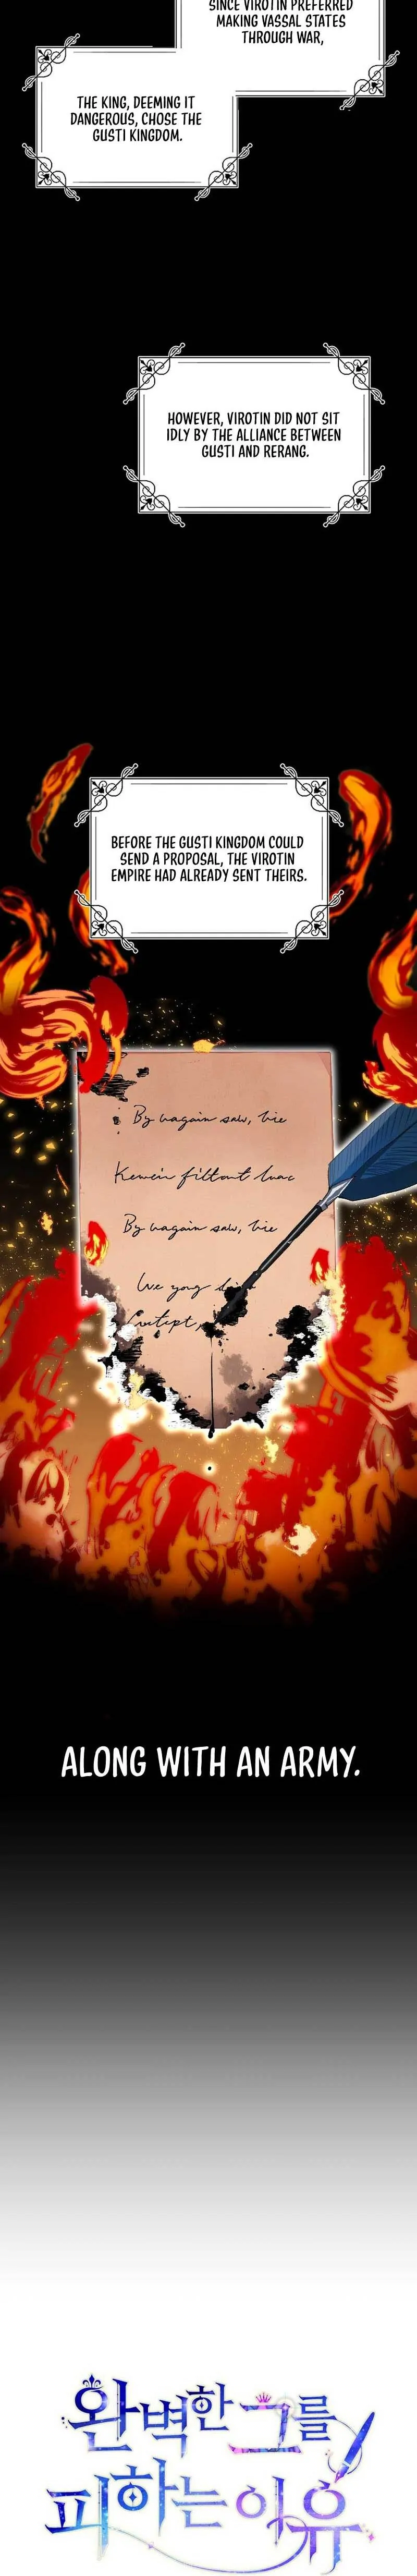 SINCE VIROTIN PREFERRED
MAKING VASSAL STATES
THROUGH WAR,
THE KING, DEEMING IT
DANGEROUS, CHOSE THE
GUSTI KINGDOM.
HOWEVER, VIROTIN DID NOT SIT
IDLY BY THE ALLIANCE BETWEEN
GUSTI AND RERANG.
BEFORE THE GUSTI KINGDOM COULD
SEND A PROPOSAL, THE VIROTIN
EMPIRE HAD ALREADY SENT THEIRS.
ALONG WITH AN ARMY.
완벽한 그를
피하는 이유